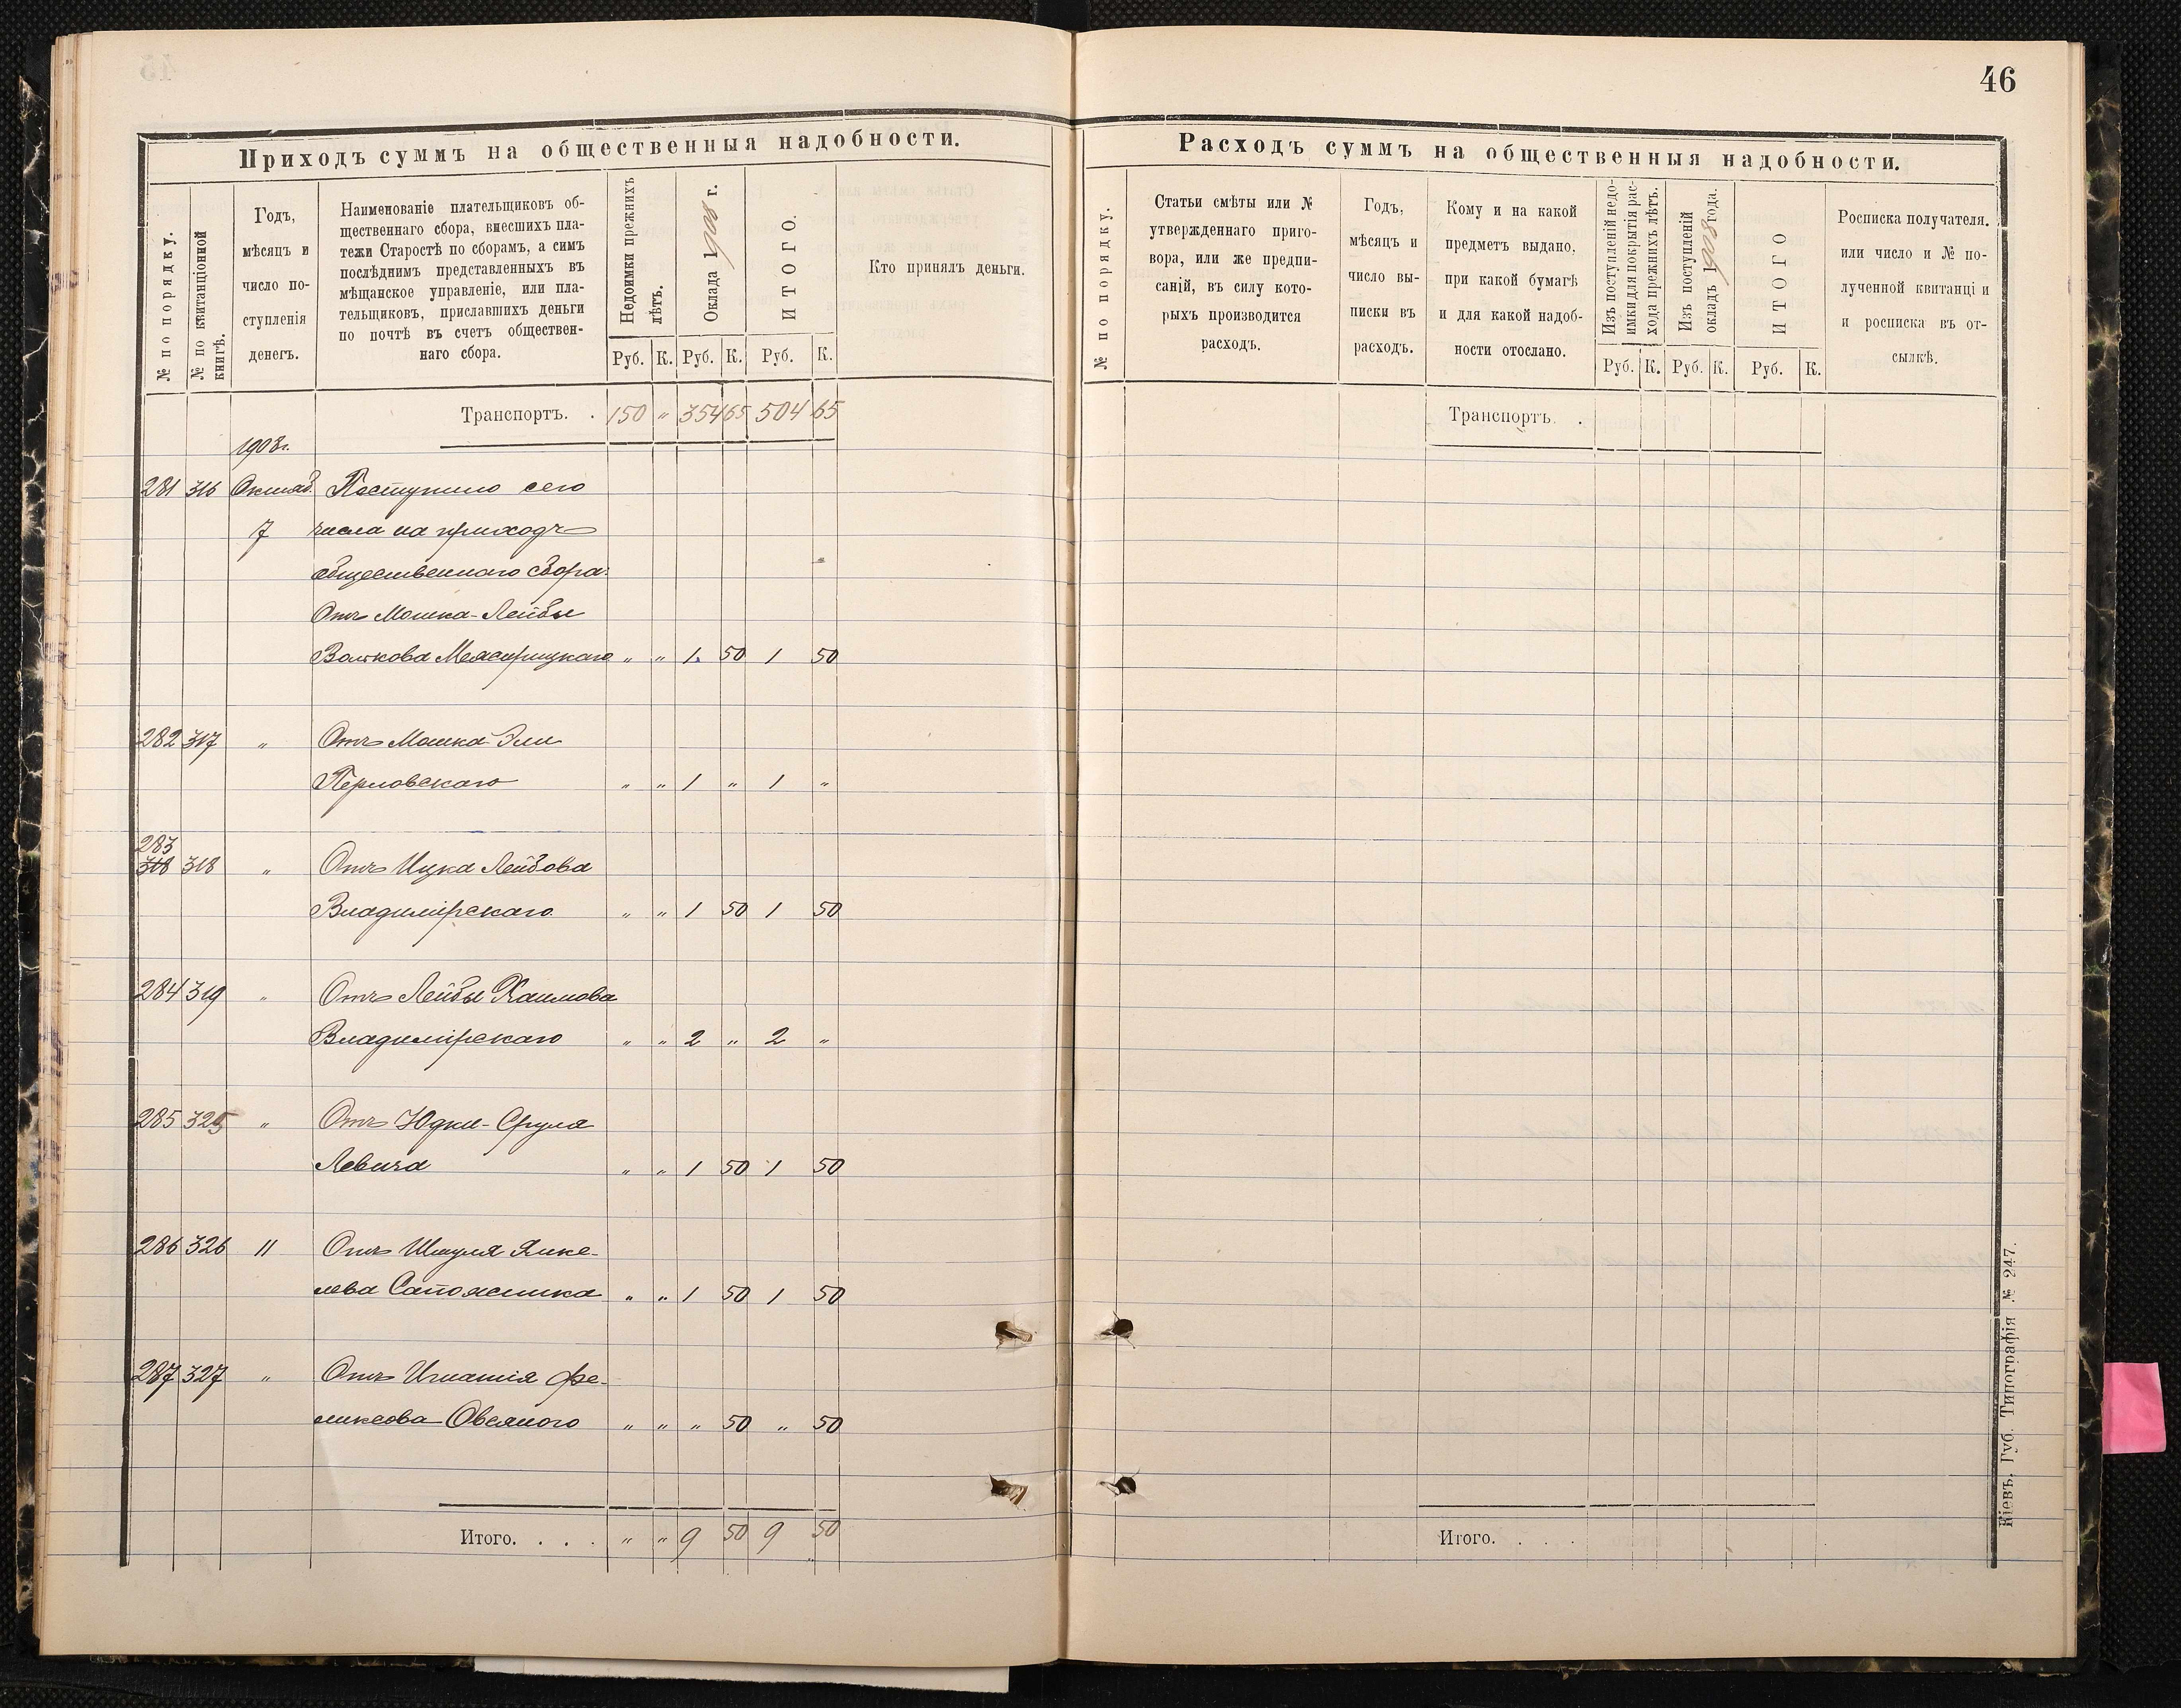 46
Приходъ суммъ на общественныя надобности.
№ по порядку.
№ по квитанціонной книгѣ.
Годъ, мѣсяцъ и число поступленія денегъ.
Наименованіе плательщиковъ об-
щественнаго сбора, внесшихъ пла-
тежи Старостѣ по сборамъ, а симъ
послѣднимъ представленныхъ въ
мѣщанское управленіе, или пла-
тельщиковъ, приславшихъ деньги
по почтѣ въ счетъ обществен-
наго сбора.
Недоимки прежнихъ лѣтъ.
Оклада 1908 г.
ИТОГО.
Кто принялъ деньги.
Руб. К. Руб. К. Руб. К.
Транспортъ. . 150 " 354 65 504 65
1908 г.
281 316 Октяб. Поступило сего
7 числа на приходъ
общественнаго сбора:
Отъ Мошка-Лейбы
Волкова Межирицкаго " " 1 50 1 50
282 317 " Отъ Мошка Эли
Перловскаго " " 1 " 1 "
283
318 318 " Отъ Ицка Лейбова
Владимірскаго " " 1 50 1 50
284 319 " Отъ Лейбы Хаимова
Владимірскаго " " 2 " 2 "
285 325 " Отъ Юдки-Сруля
Левича " " 1 50 1 50
286 326 11 Отъ Шмуля Янке-
лева Сапожника " " 1 50 1 50
287 327 " Отъ Игнатія Фе-
ликсова Овсяного " " " 50 " 50
Итого. . . . " " 9 50 9 50
Расходъ суммъ на общественныя надобности.
№ по порядку.
Статьи смѣты или №
утвержденнаго приго-
вора, или же предпи-
саній, въ силу кото-
рыхъ производится
расходъ.
Годъ,
мѣсяцъ и
число вы-
писки въ
расходъ.
Кому и на какой
предметъ выдано,
при какой бумагѣ
и для какой надоб-
ности отослано.
Изъ поступленій недо-
имки для покрытія рас-
хода прежнихъ лѣтъ.
Изъ поступленій
окладъ 1908 года.
ИТОГО
Росписка получателя.
или число и № по-
лученной квитанці и
и росписка въ от-
сылкѣ.
Руб. К. Руб. К. Руб. К.
Транспортъ. .
Итого. . . .
Кіевъ, Губ. Типографія № 247.